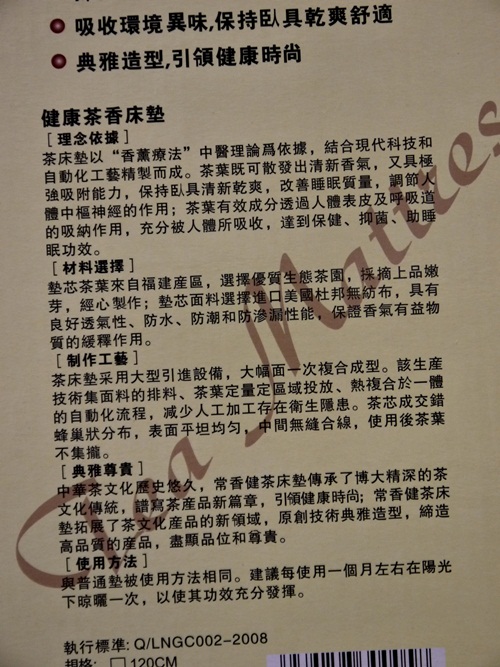 吸收環境異味,保持臥具乾爽舒適
典雅造型,引領健康時尚
健康茶香床墊
[理念依據]
茶床墊以“香薰療法”中醫理論爲依據，結合現代科技和
自動化工藝精製而成。茶葉既可散發出清新香氣，又具極
強吸附能力，保持臥具清新乾爽，改善睡眠質量，調節人
體中樞神經的作用；茶葉有效成分透過人體表皮及呼吸道
的吸納作用，充分被人體所吸收，達到保健、抑菌、助睡
眠功效。
[材料選擇]
墊芯茶葉來自福建産區，選擇優質生態茶園，採摘上品嫩
芽，經心製作；墊芯面料選擇進口美國杜邦無紡布，具有
良好透氣性、防水、防潮和防滲漏性能，保證香氣有益物
質的緩釋作用。
[制作工藝]
茶床墊采用大型引進設備，大幅面一次複合成型。該生産
技術集面料的排料、茶葉定量定區域投放、熱複合於一體
的自動化流程，减少人工加工存在衛生隱患。茶芯成交錯
蜂巢狀分布，表面平坦均匀，中間無縫合線，使用後茶葉
不集攏。
[典雅尊貴]
中華茶文化歷史悠久，常香健茶床墊傳承了博大精深的茶
文化傳統，譜寫茶産品新篇章，引領健康時尚；常香健茶床
墊拓展了茶文化産品的新領域，原創技術典雅造型，締造
高品質的産品，盡顯品位和尊貴。
[使用方法]
與普通墊被使用方法相同。建議每使用一個月左右在陽光
下晾曬一次，以使其功效充分發揮。
執行標準: Q/LNGC002-2008
規格: □120CM
Tea Mattress